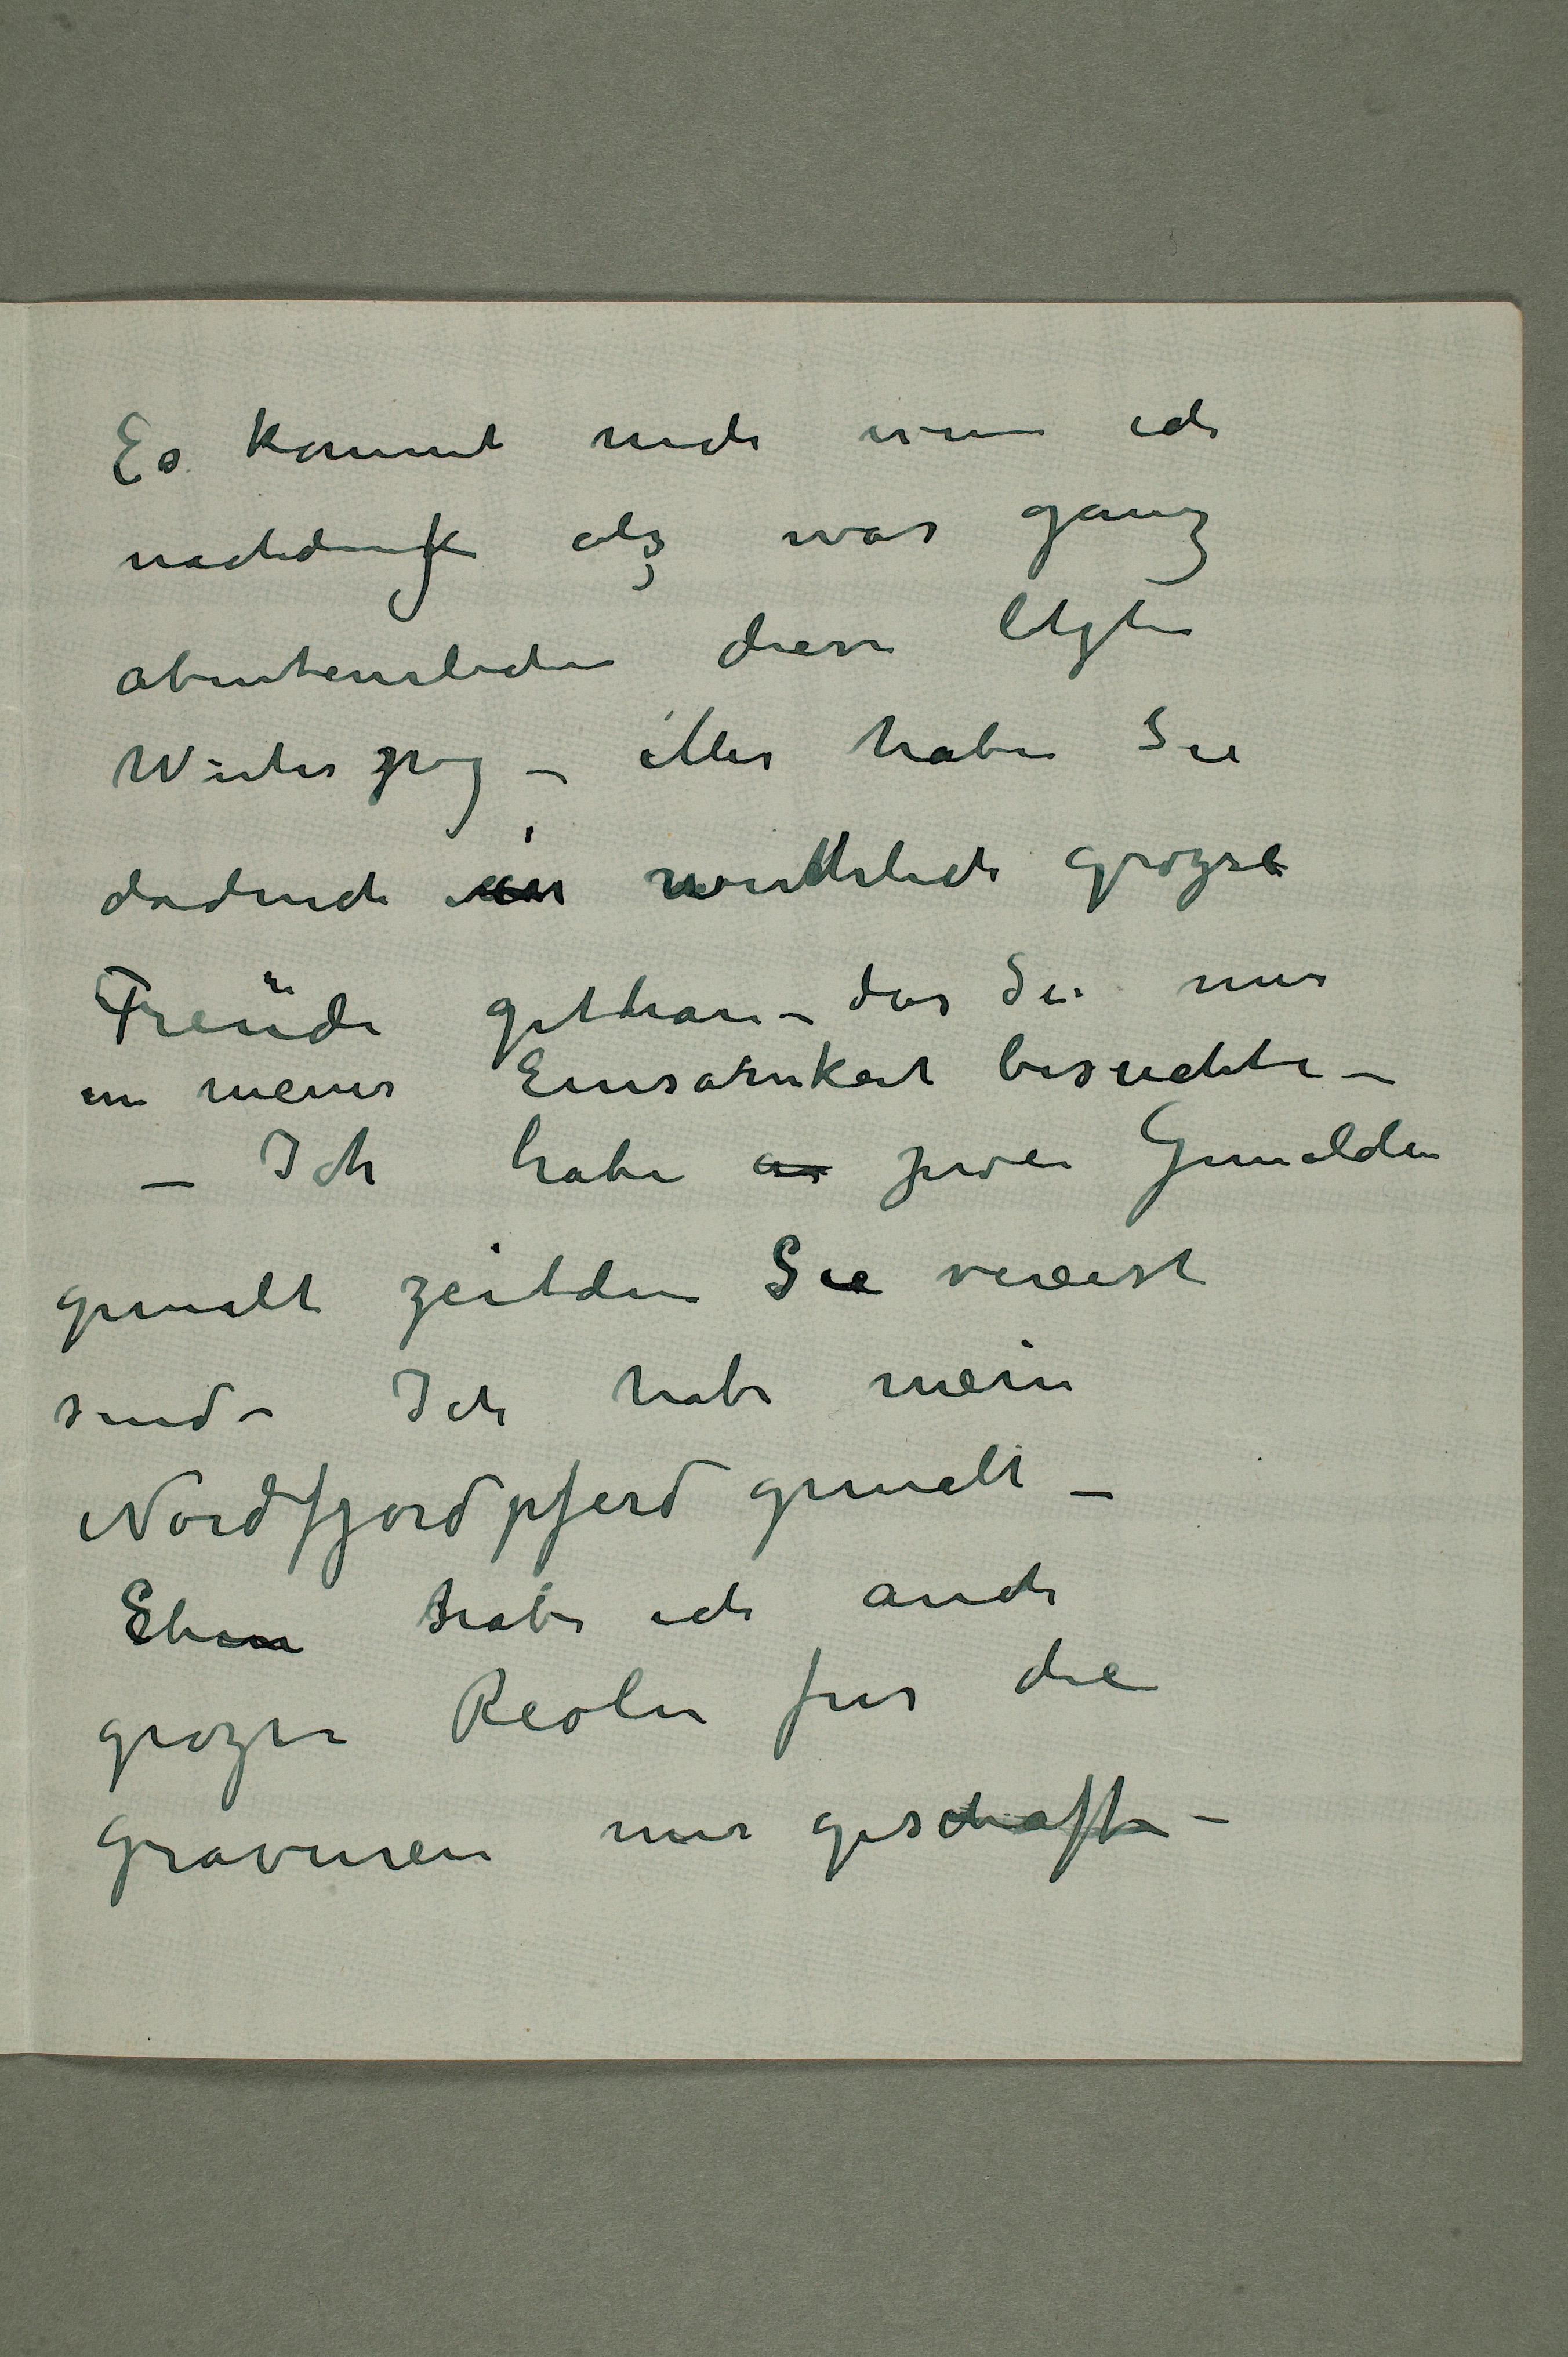 Es kommt mich wenn ich
nachdenke alz was ganz
abenteuerlichen diese letzte
Winterzug – aller haben Sie
dadurch ein wirklich grozse
Freüde gethan – das Sie mir
in meiner Einsamkeit besuchte –
– Ich habe an zwei Gemälden
gemalt zeitdem Sie vereist
sind – Ich habe mein
Nordfjordpferd gemalt –
Eben habe ich auch
grozse Reolen fur die
Gravuren mir geschafft –